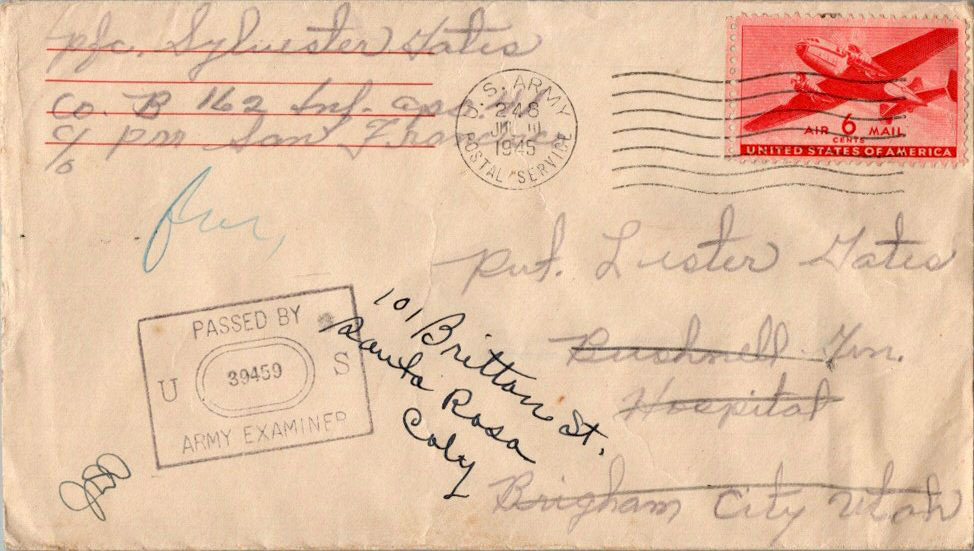 Pfc. Sylvester Gates
Co. B 162 Inf. apo
c/o pm San Francisco
U. S. ARMY
248
JUL 11
1945
POSTAL SERVICE
AIR 6 MAIL
CENTS
UNITED STATES OF AMERICA
Pvt. Lester Gates
Bushnell Gen.
Hospital
Brigham City Utah
101 Brittan St.
Santa Rosa
PASSED BY
U 39459 S
ARMY EXAMINER